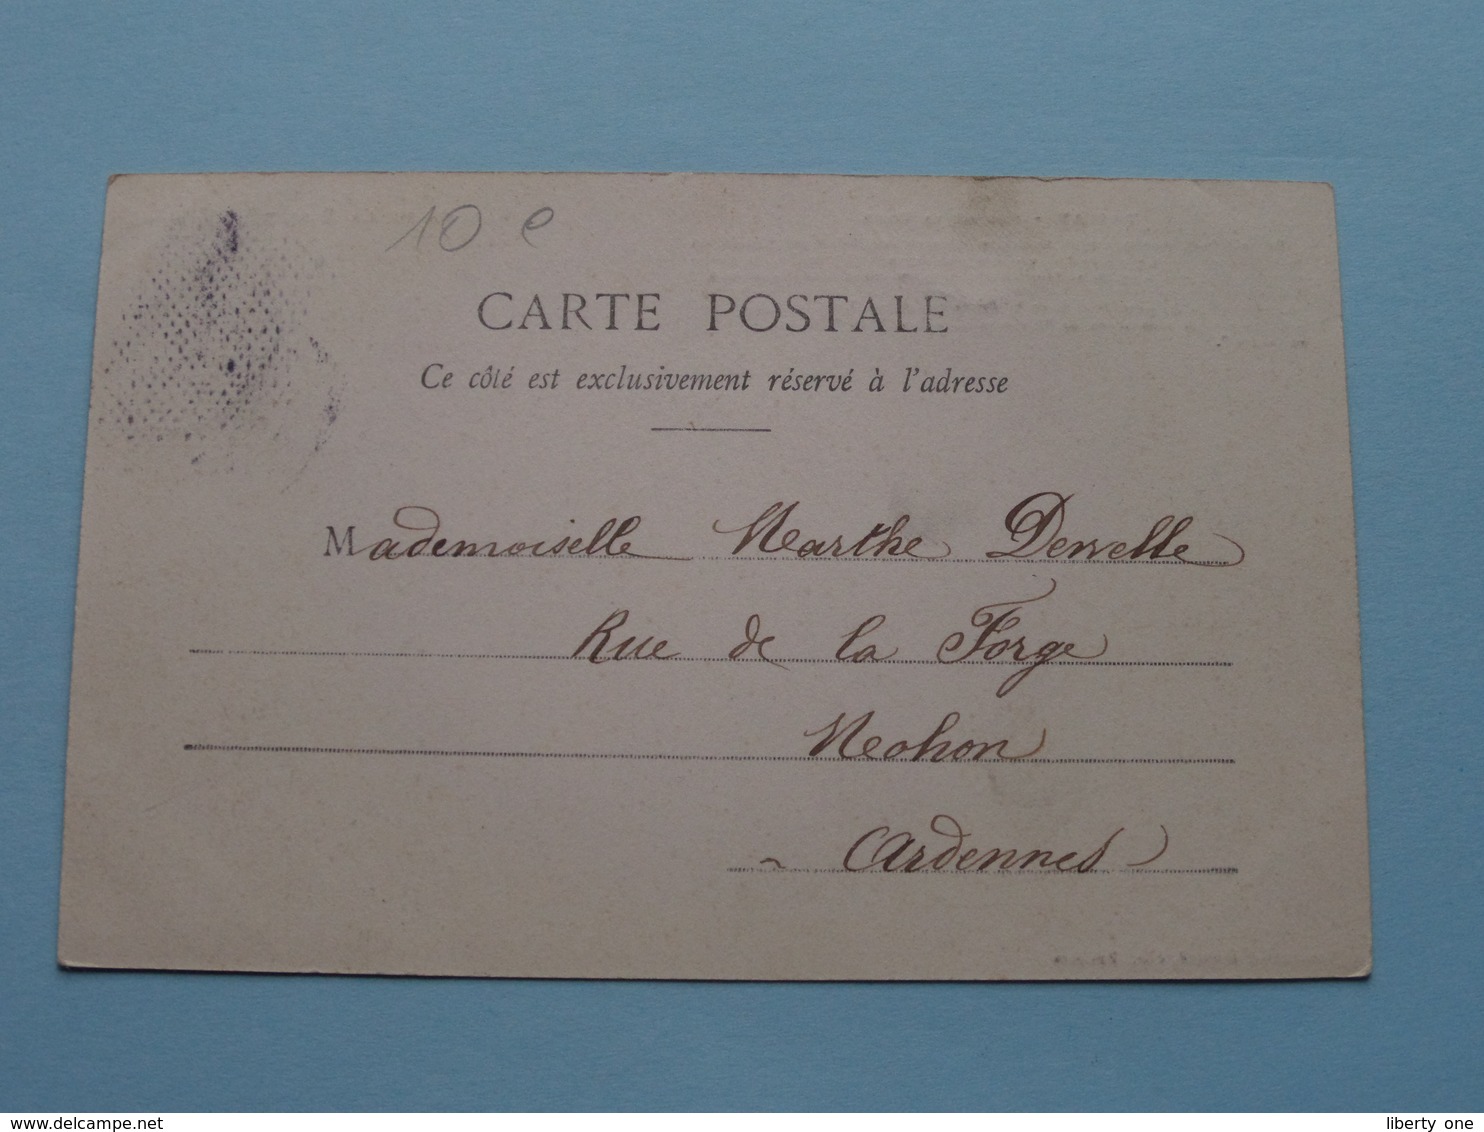 10 e
CARTE POSTALE
Ce côté est exclusivement réservé à l'adresse
Mademoiselle Marthe Dervelle
Rue de la Forge
Mohon
Ardennes
www.delcampe.net
liberty one